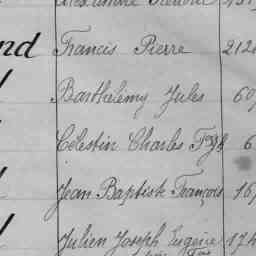 nd Francis Pierre 212
Barthélemy Jules 60
Célestin Charles
Jean Baptiste François 16
Julien Joseph Eugène 174